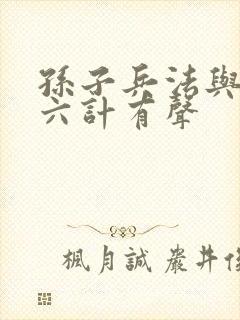 孫子兵法與
六計有聲
楓月誠 嚴井俊